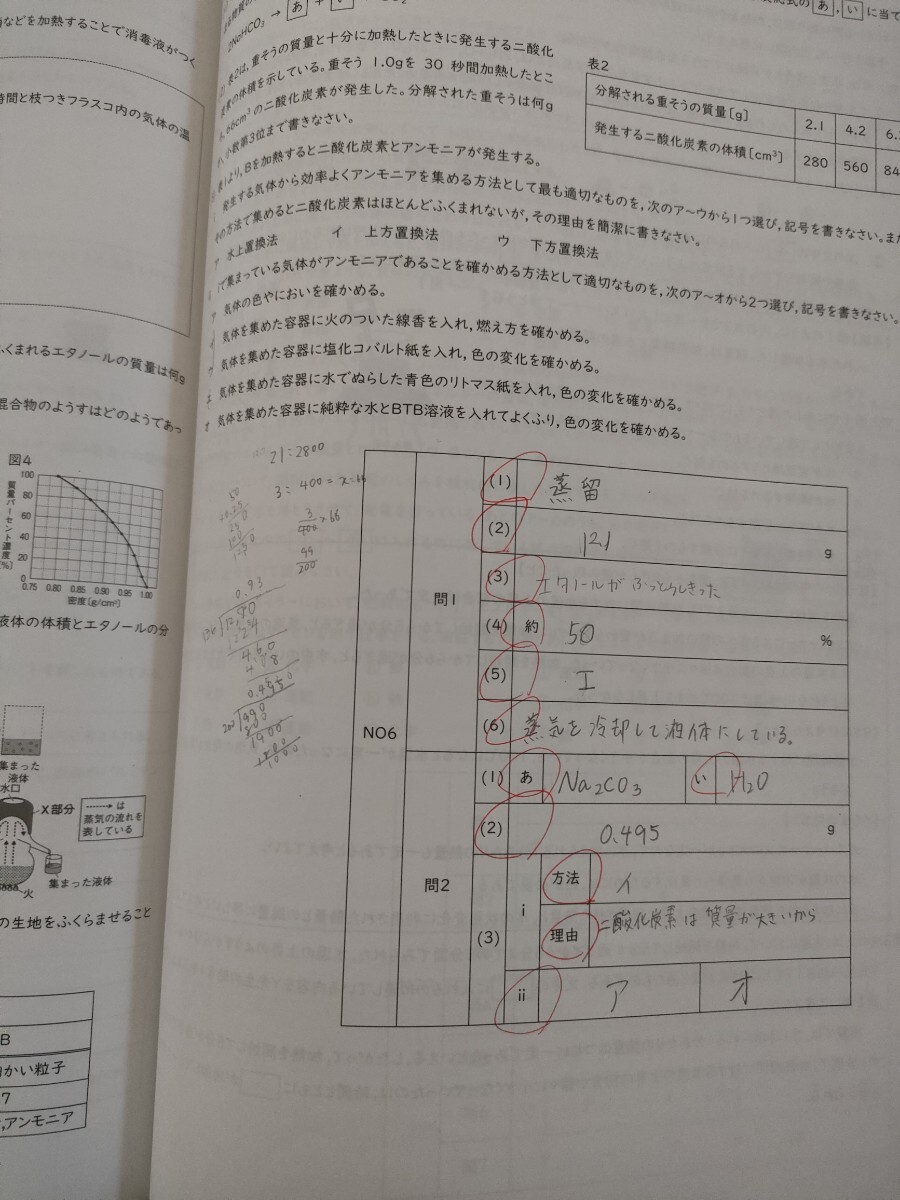 などを加熱することで消毒液がつく
時間と枝つきフラスコ内の気体の温
ふくまれるエタノールの質量は何g
混合物のようすはどのようであっ
図4
質量パーセント濃度[%]
100
80
60
40
20
0
0.75 0.80 0.85 0.90 0.95 1.00
密度[g/cm³]
液体の体積とエタノールの分
集まった
液体
水口
X部分
は
蒸気の流れを
表している
集まった液体
火
の生地をふくらませること
B
かい粒子
7
,アンモニア
2NaHCO₃ → あ + い
あ, い に当て
表2は,重そうの質量と十分に加熱したときに発生する二酸化
炭素の体積を示している。重そう 1.0gを 30 秒間加熱したとこ
66cm³の二酸化炭素が発生した。分解された重そうは何g
小数第3位まで書きなさい。
表2
分解される重そうの質量[g] 2.1 4.2 6.
発生する二酸化炭素の体積[cm³] 280 560 84
表1より,Bを加熱すると二酸化炭素とアンモニアが発生する。
発生する気体から効率よくアンモニアを集める方法として最も適切なものを,次のア～ウから1つ選び,記号を書きなさい。また
その方法で集めると二酸化炭素はほとんどふくまれないが,その理由を簡潔に書きなさい。
ア 水上置換法 イ 上方置換法 ウ 下方置換法
で集まっている気体がアンモニアであることを確かめる方法として適切なものを,次のア～オから2つ選び,記号を書きなさい。
ア 気体の色やにおいを確かめる。
気体を集めた容器に火のついた線香を入れ,燃え方を確かめる。
ウ 気体を集めた容器に塩化コバルト紙を入れ,色の変化を確かめる。
エ 気体を集めた容器に水でぬらした青色のリトマス紙を入れ,色の変化を確かめる。
オ 気体を集めた容器に純粋な水とBTB溶液を入れてよくふり,色の変化を確かめる。
21:2800
3:400=x:66
3/400×66
99
200
0.93
0.4950
200
1900
NO6
問1
(1) 蒸留
(2) 12.1 g
(3) エタノールがふっとうしきった
(4) 約 50 %
(5) エ
(6) 蒸気を冷却して液体にしている。
問2
(1) あ Na₂CO₃ い H₂O
(2) 0.495 g
(3) i 方法 イ
理由 二酸化炭素は質量が大きいから
ii ア オ